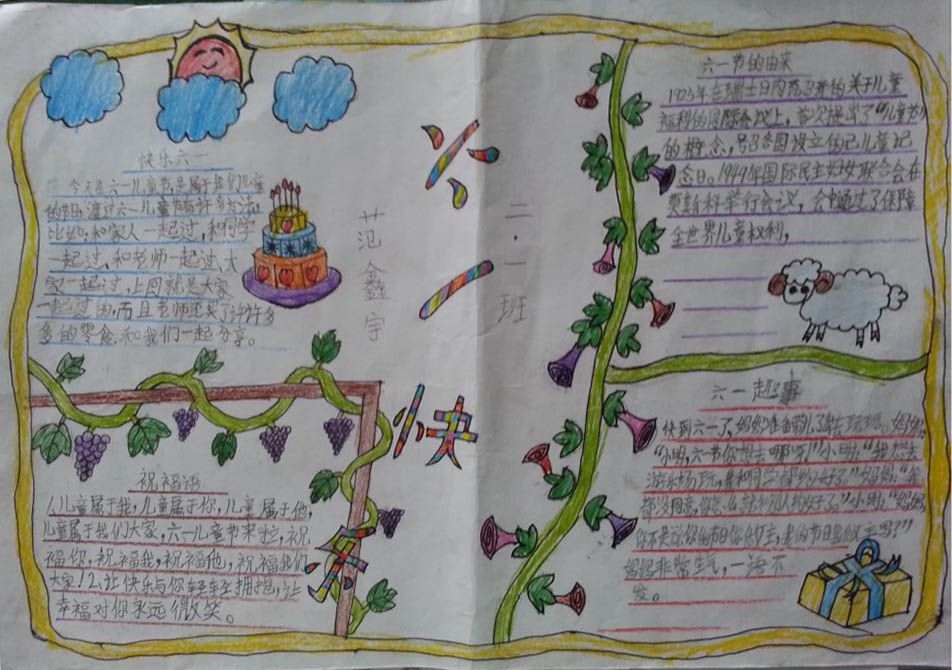 快乐六一
今天是六一儿童节,是属于我们儿童
的节日,渡过六一儿童节有许多方法,
比如:和家人一起过,和同学
一起过、和老师一起过、大
家一起过,上周就是大家
一起过的,而且老师还买了许许多
多的零食,和我们一起分享。
祝福语
1、儿童属于我,儿童属于你,儿童属于他,
儿童属于我们大家,六一儿童节来啦,祝
福你,祝福我,祝福他,祝福我们
大家!2、让快乐与你轻轻拥抱,让
幸福对你永远微笑。
六一快乐
范鑫宇
二·一班
六一节的由来
1925年在瑞士日内瓦召开的关于儿童
福利的国际会议上,首次提出了“儿童节”
的概念,号召各国设立自己儿童纪
念日。1949年国际民主妇女联合会在
莫斯科举行会议,会中通过了保障
全世界儿童权利,
六一趣事
快到六一了,妈妈准备带儿子去玩玩。妈妈:
“小明,六一节你想去哪呀!”小明:“我想去
游乐场玩,是和同学都约好了。”妈妈:“我
都没同意,你怎么就和别人约好了。”小明:“妈妈,
你不是说你的节日你做主,我的节日我做主吗?”
妈妈非常生气,一语不
发。